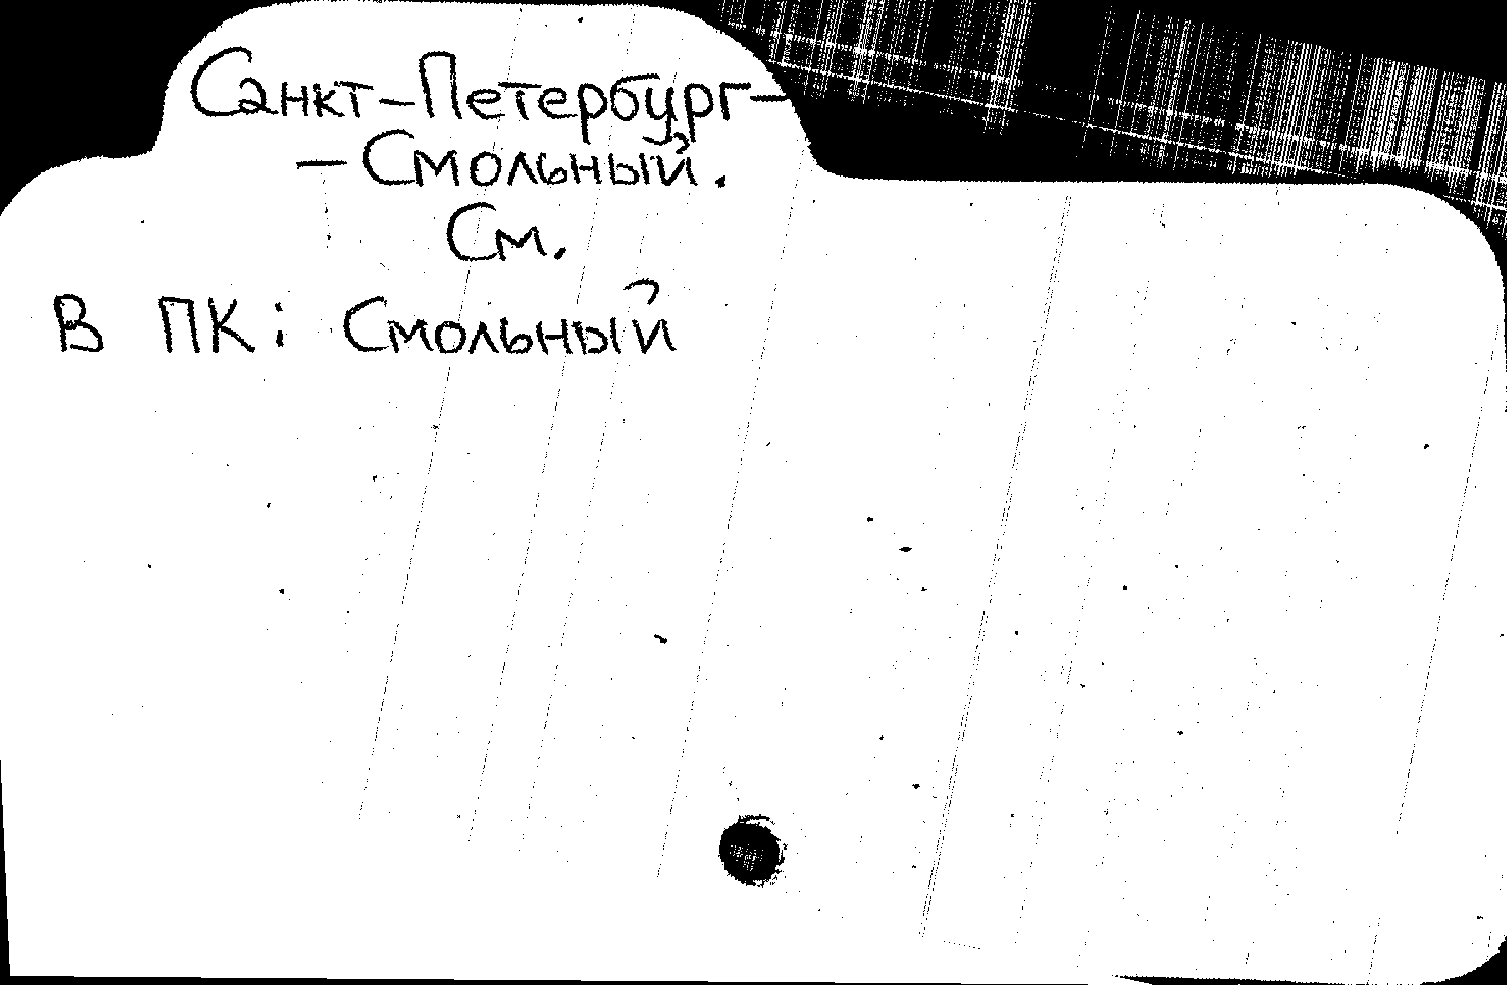 Санкт-Петербург-
-Смольный.
См.
В ПК: Смольный